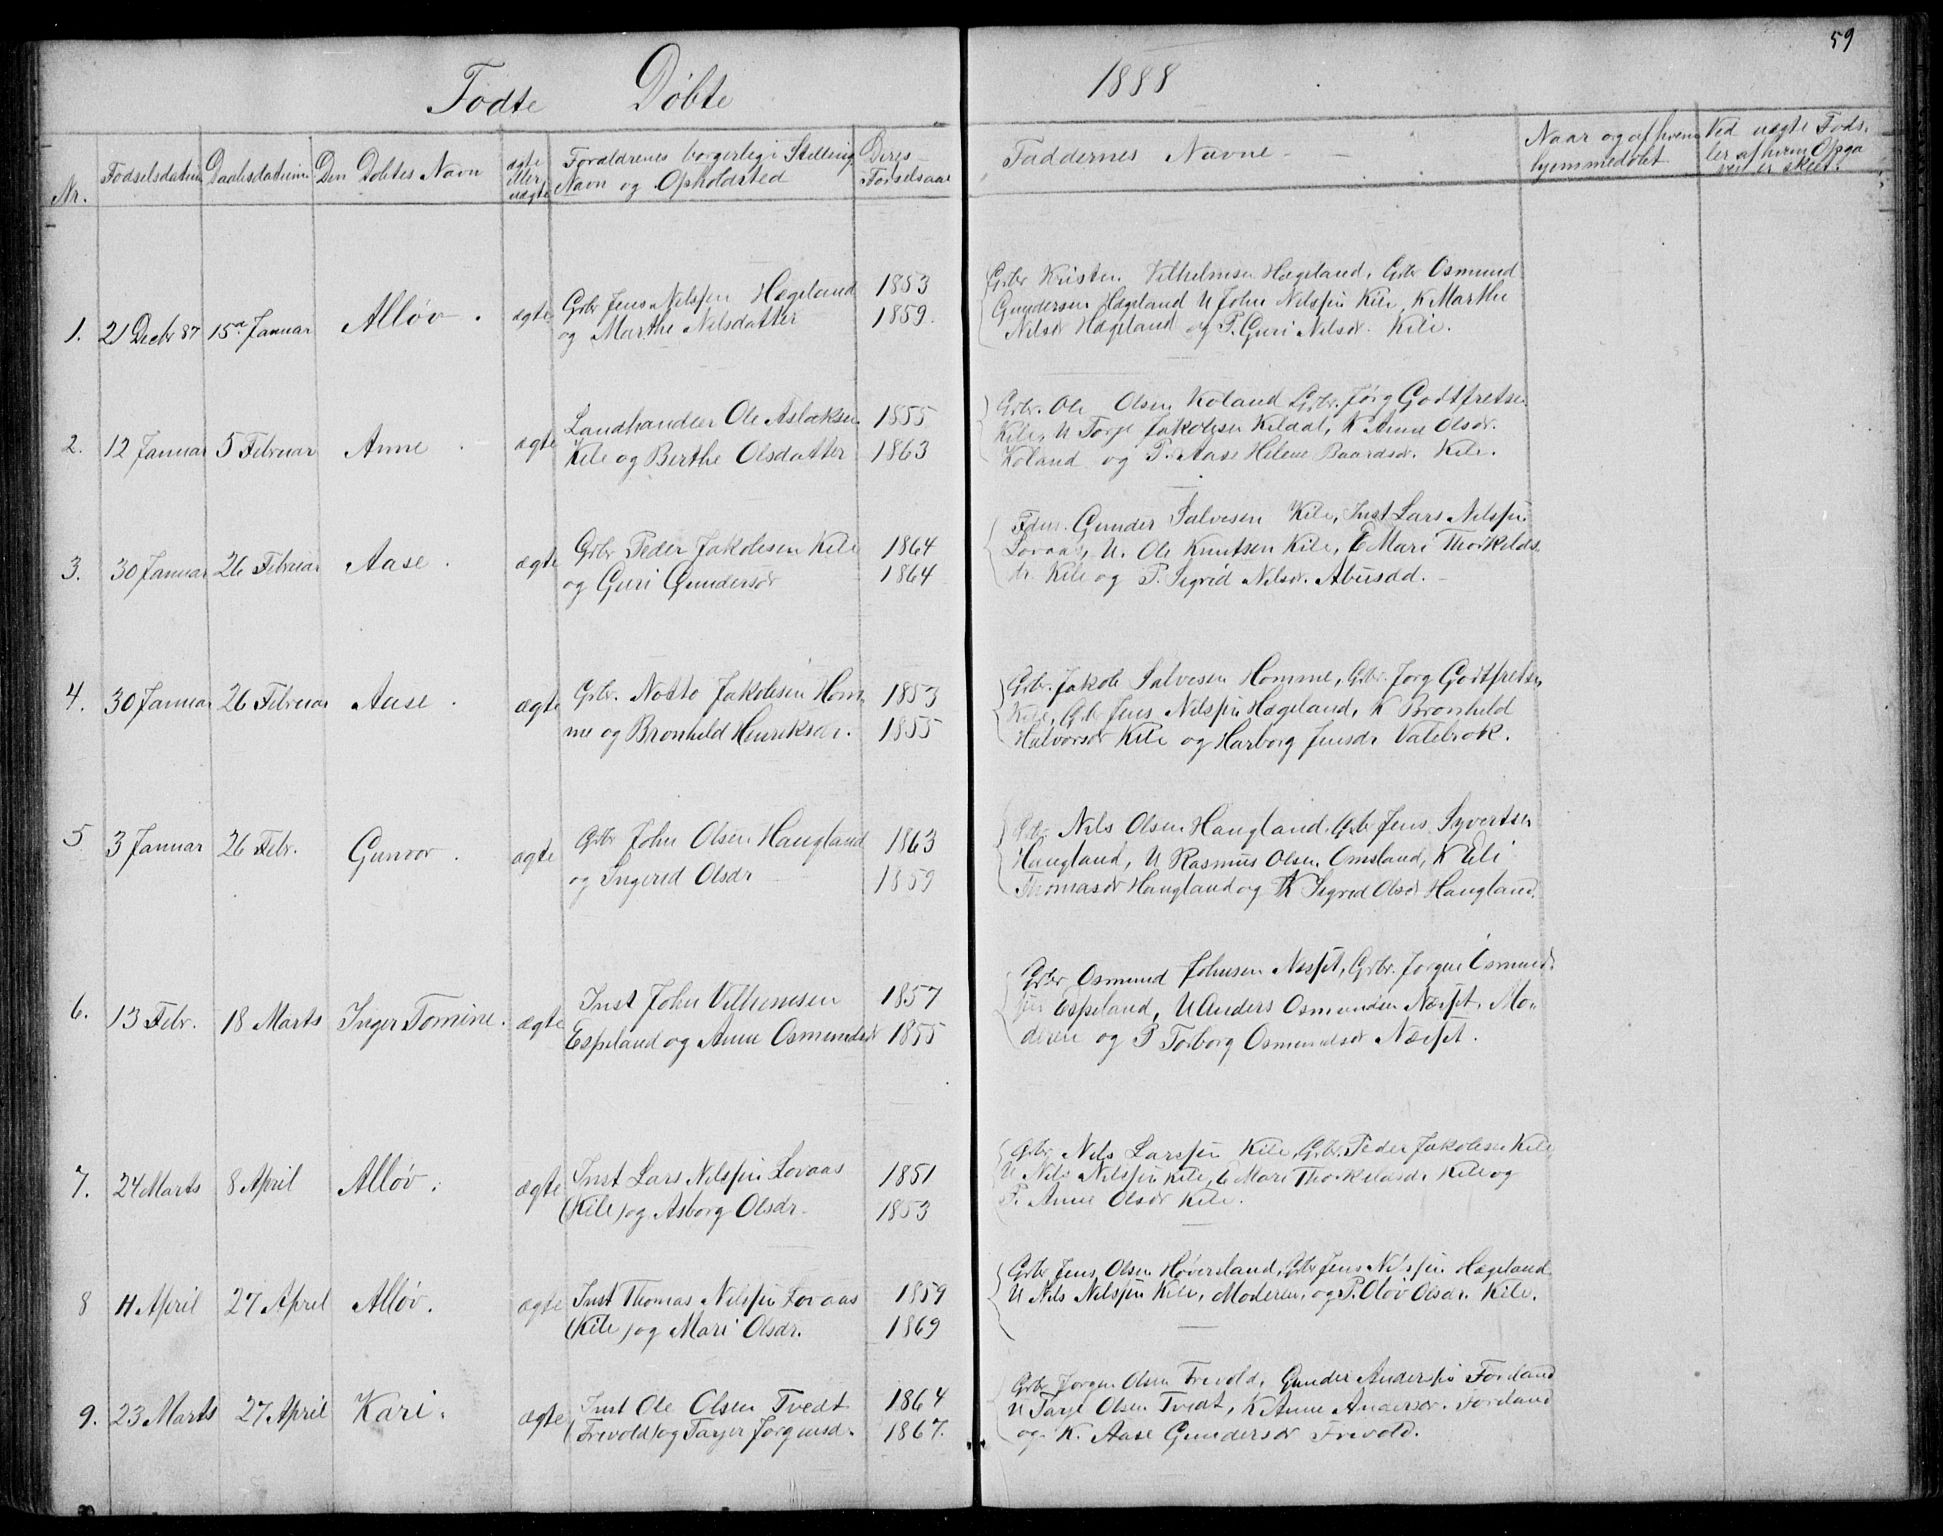 59
Fødte Døbte 1888
Nr.
Fødselsdatum
Daabsdatum
Den Døbtes Navn
ægte
eller
uægte
Forældrenes borgerlige Stilling
Navn og Opholdsted
Deres
Fødselsaar
Faddernes Navne
Naar og af hvem
hjemmedøbt
Ved uægte Føds-
ler af hvem Opga
ver er skeet.
1. 21 Decbr 87 15de Januar Alløv. ægte
Grbr Jens Nilssen Hægeland 1853
og Marthe Nilsdatter 1859.
Grbr Kristen Vilhelmsen Hægeland, Grbr Osmund
Gundersen Hægeland U John Nilssen Kile, K Marthe
Nilsdr Hægeland og P. Guri Nilsdr. Kile.
2. 12 Januar 5 Februar Anne. ægte
Landhandler Ole Aslaksen 1855
Kile og Berthe Olsdatter 1863
Grbr. Ole Olsen Koland Grbr. Jørg Godtfretsen
Kile, U Torje Jakobsen Kildal, K Anne Olsdr.
Koland og P. Aase Helene Baardsdr. Kile.
3. 30 Januar 26 Februar Aase. ægte
Grbr Peder Jakobsen Kile 1864
og Guri Gundersdr 1864
Gunder Salvesen Kile, Inst Lars Nilssen
Lovaas, U. Ole Knutsen Kile, E Mari Thorkelds
dr. Kile og P. Sigrid Nilsdr. Abusdal.
4. 30 Januar 26 Februar Aase. ægte
Grbr. Notto Jakobsen Hom- 1853
me og Brønhild Henriksdr. 1855
Grbr. Jakob Salvesen Homme, Grbr. Jørg Godtfretsen
Kile, Grbr Jens Nilssen Hægeland, K Brønhild
Halvorsdr Kile og Harborg Jensdr Vatebrok.
5 3 Januar 26 Febr. Gunvor. ægte
Grbr John Olsen Haugland 1863
og Ingerid Olsdr 1859
Grbr Nils Olsen Haugland, Grbr Jens Syvertsen
Haugland, U Rasmus Olsen Omsland, K Eli
Thomasdr Haugland og K Sigrid Olsdr Haugland.
6. 13 Febr. 18 Marts Inger Tomine. ægte
Inst John Vilhemsen 1857
Espeland og Anne Osmundsdr 1855
Grbr Osmund Johnsen Næsset, Grbr. Jørgen Osmund-
sen Espeland, U Anders Osmundsen Næsset, Mo-
deren og P Torborg Osmundsdr Næsset.
7. 24 Marts 8 April Alløv. ægte
Inst Lars Nilssen Lovaas 1851
(Kile) og Asborg Olsdr. 1853
Grbr Nils Larssen Kile, Grbr. Peder Jakobsen Kile
U Nils Nilssen Kile, E Mari Thorkeldsdr Kile og
P. Anne Olsdr Kile.
8 4 April 27 April Alløv. ægte
Inst Thomas Nilssen Lovaas 1859
(Kile) og Mari Olsdr. 1869
Grbr Jens Olsen Høversland, Grbr Jens Nilssen Hægeland
U Nils Nilssen Kile, Moderen, og P. Oløv Olsdr. Kile.
9. 23 Marts 27 April Kari. ægte
Inst Ole Olsen Tvedt 1864
(Frevold) og Tarjer Jørgensd. 1867.
Grbr Jørgen Olsen Frevold, Gunder Anderssen Foreland
U Tarje Olsen Tvedt, K Anne Andersdr. Foreland
og K. Aase Gundersdr Frevold.